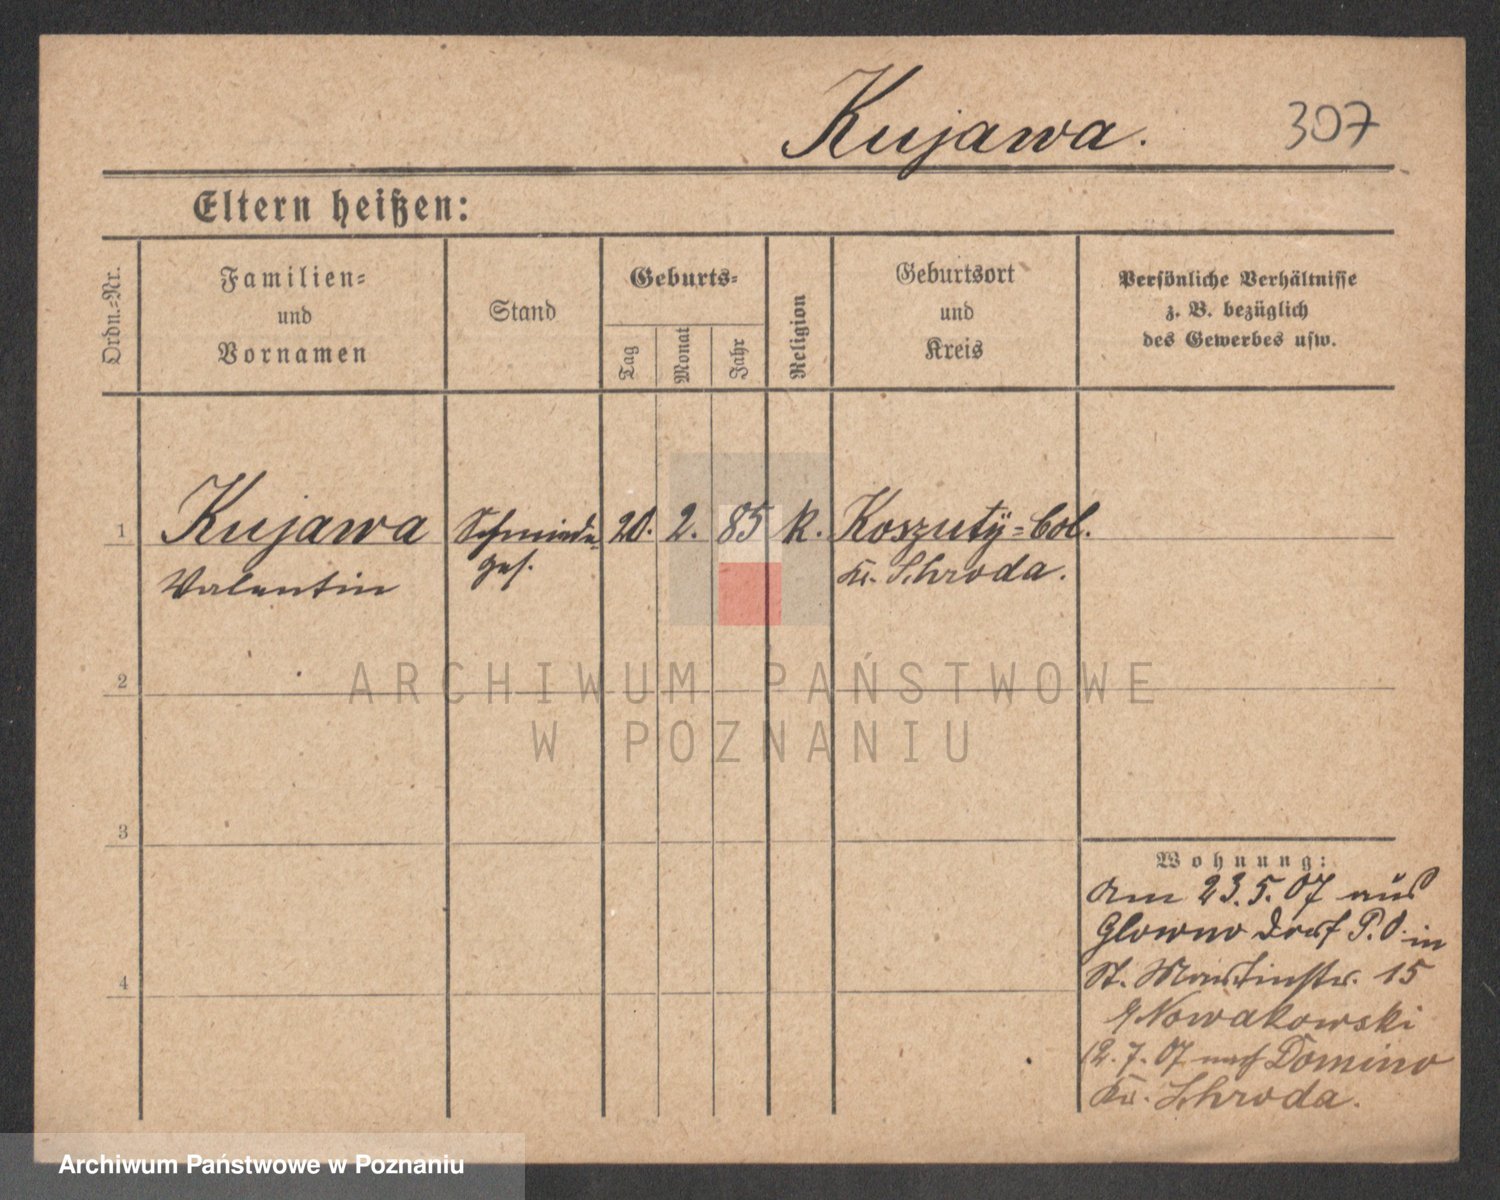 Kujawa.
307
Eltern heißen:
Ordn.=Nr.
Familien=
und
Vornamen
Stand
Geburts=
Tag
Monat
Jahr
Religion
Geburtsort
und
Kreis
Persönliche Verhältnisse
z. B. bezüglich
des Gewerbes usw.
1 Kujawa Schmiede= 20. 2. 85 k. Koszuty=Col.
Valentin ges. Kr. Schroda.
2
ARCHIWUM PAŃSTWOWE
W POZNANIU
3
Wohnung:
Am 23.5.07 aus
Glowno Dorf P.O. in
4 St. Martinstr. 15
Nowakowski
12.7.07 nach Domino
Kr. Schroda.
Archiwum Państwowe w Poznaniu